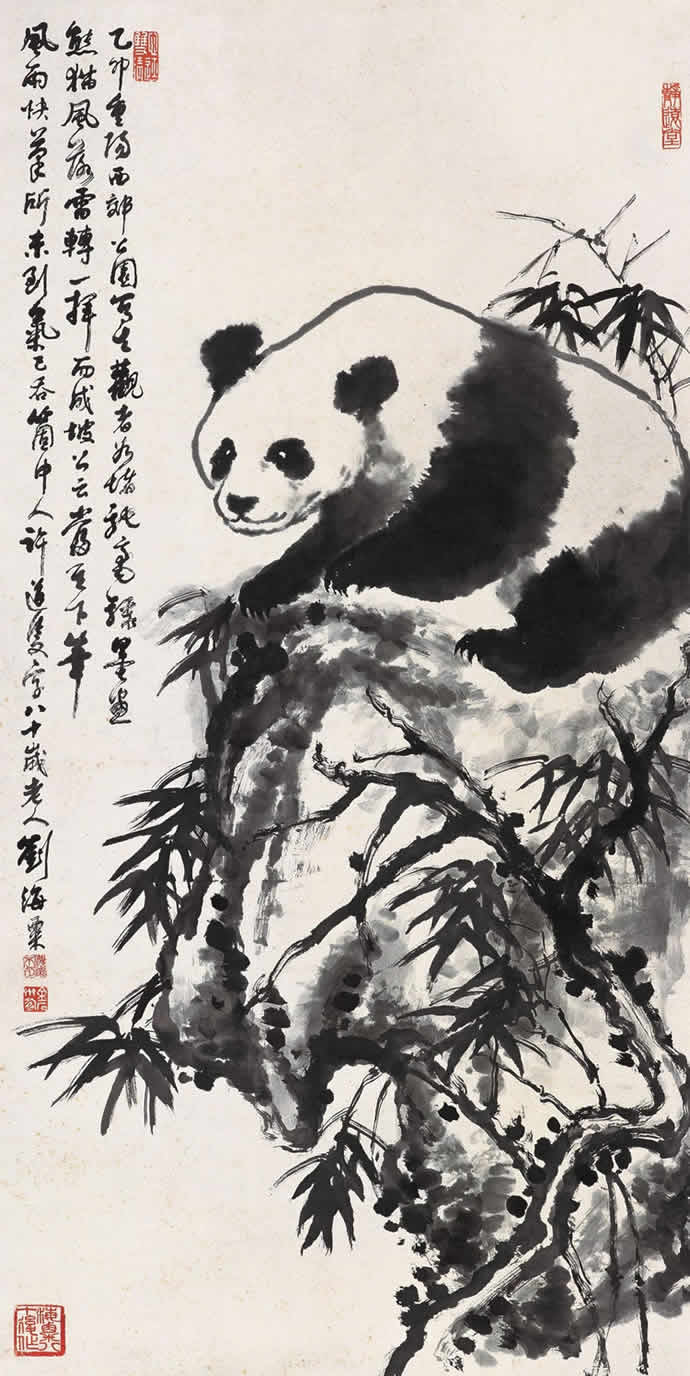 乙卯重阳西郊公園写生觀者如堵乘高骤墨畫
熊猫風落雷轉一揮而成坡公云當其下筆
風雨快筆所未到氣已吞箇中人許道隻字八十歲老人劉海粟
靜遠堂
海粟